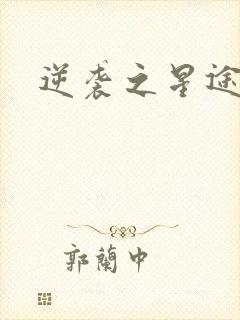 逆袭之星途
郭蘭中